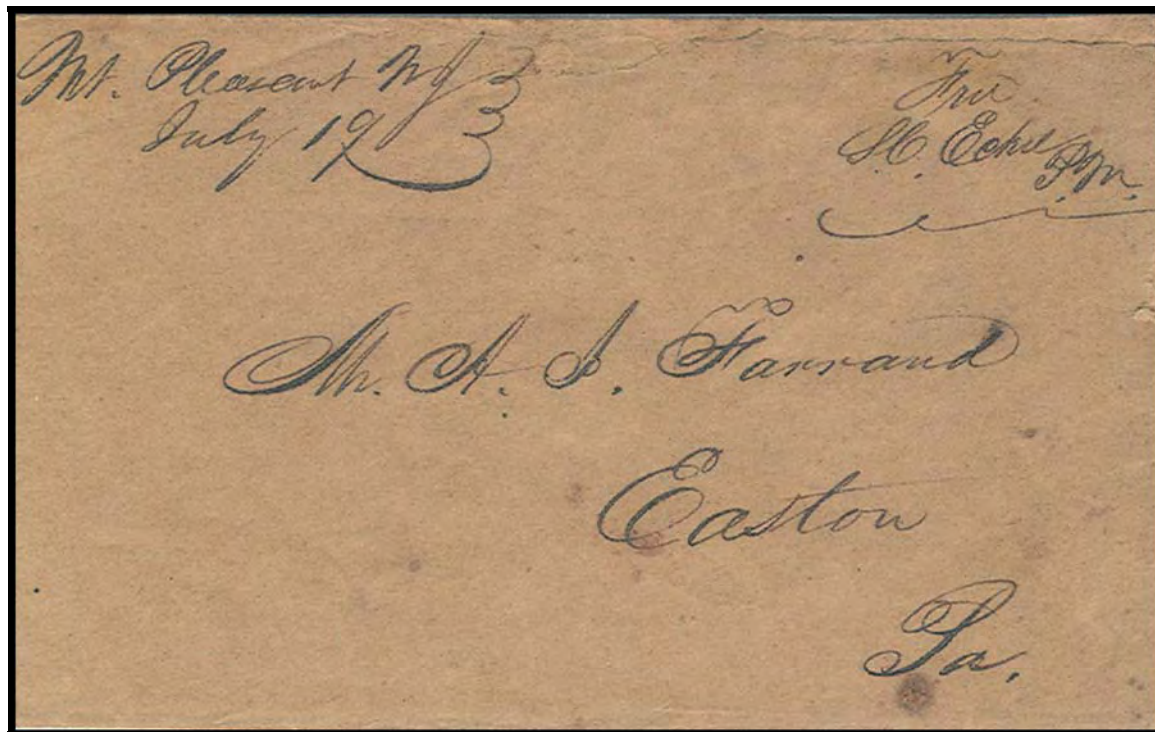 Mt. Pleasant NJ
July 19
Free
P.M.
Mr. A. J. Farrand
Easton
Pa.